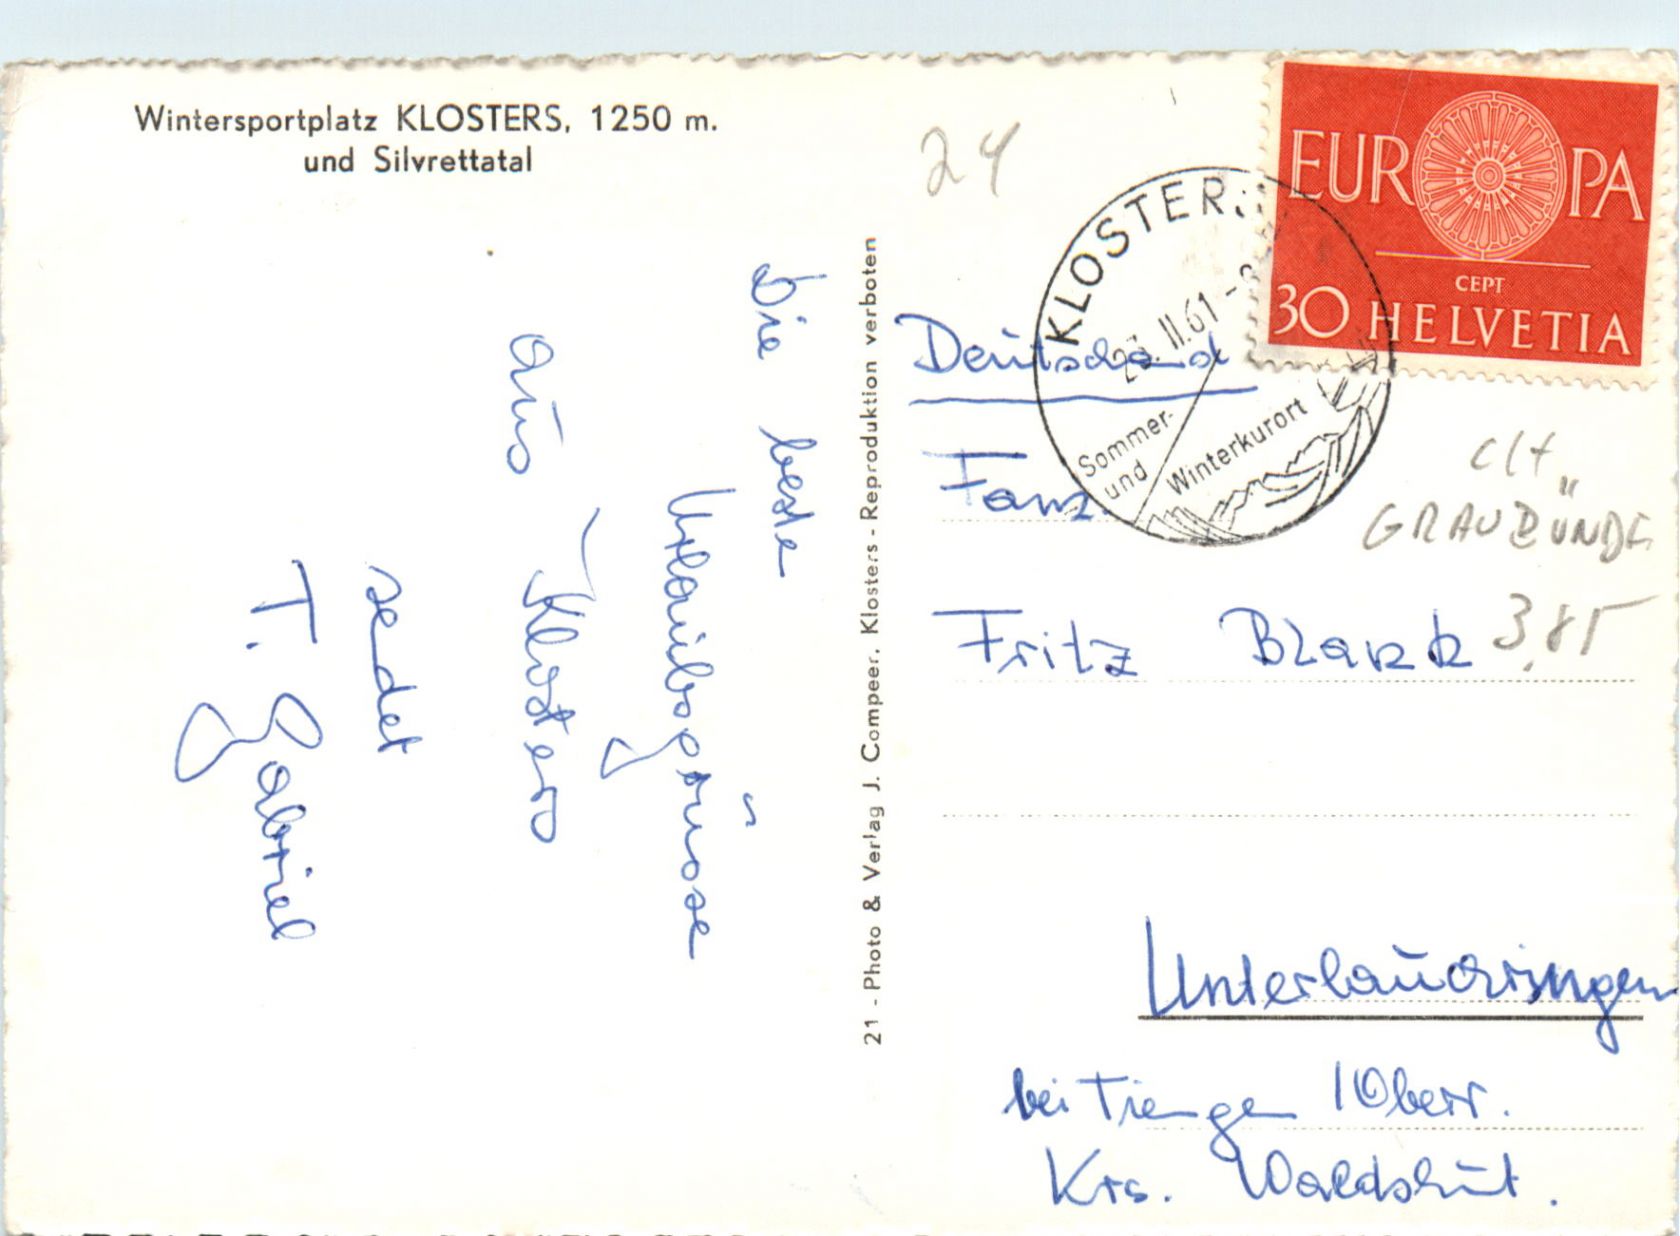 Wintersportplatz KLOSTERS, 1250 m.
und Silvrettatal
Die beste
Urlaubsgrüsse
aus Klosters
sedet
T. Gabriel
21 - Photo & Verlag J. Compeer, Klosters - Reproduktion verboten
24
EUROPA
CEPT
30 HELVETIA
KLOSTER
23. II. 61 -
Sommer-
und Winterkurort
Deutschand
Fam.
Fritz Blank
Unterlauchringen
bei Tiengen / Oberr.
Krs. Waldshut.
clt
GRAUBÜNDE
3.85